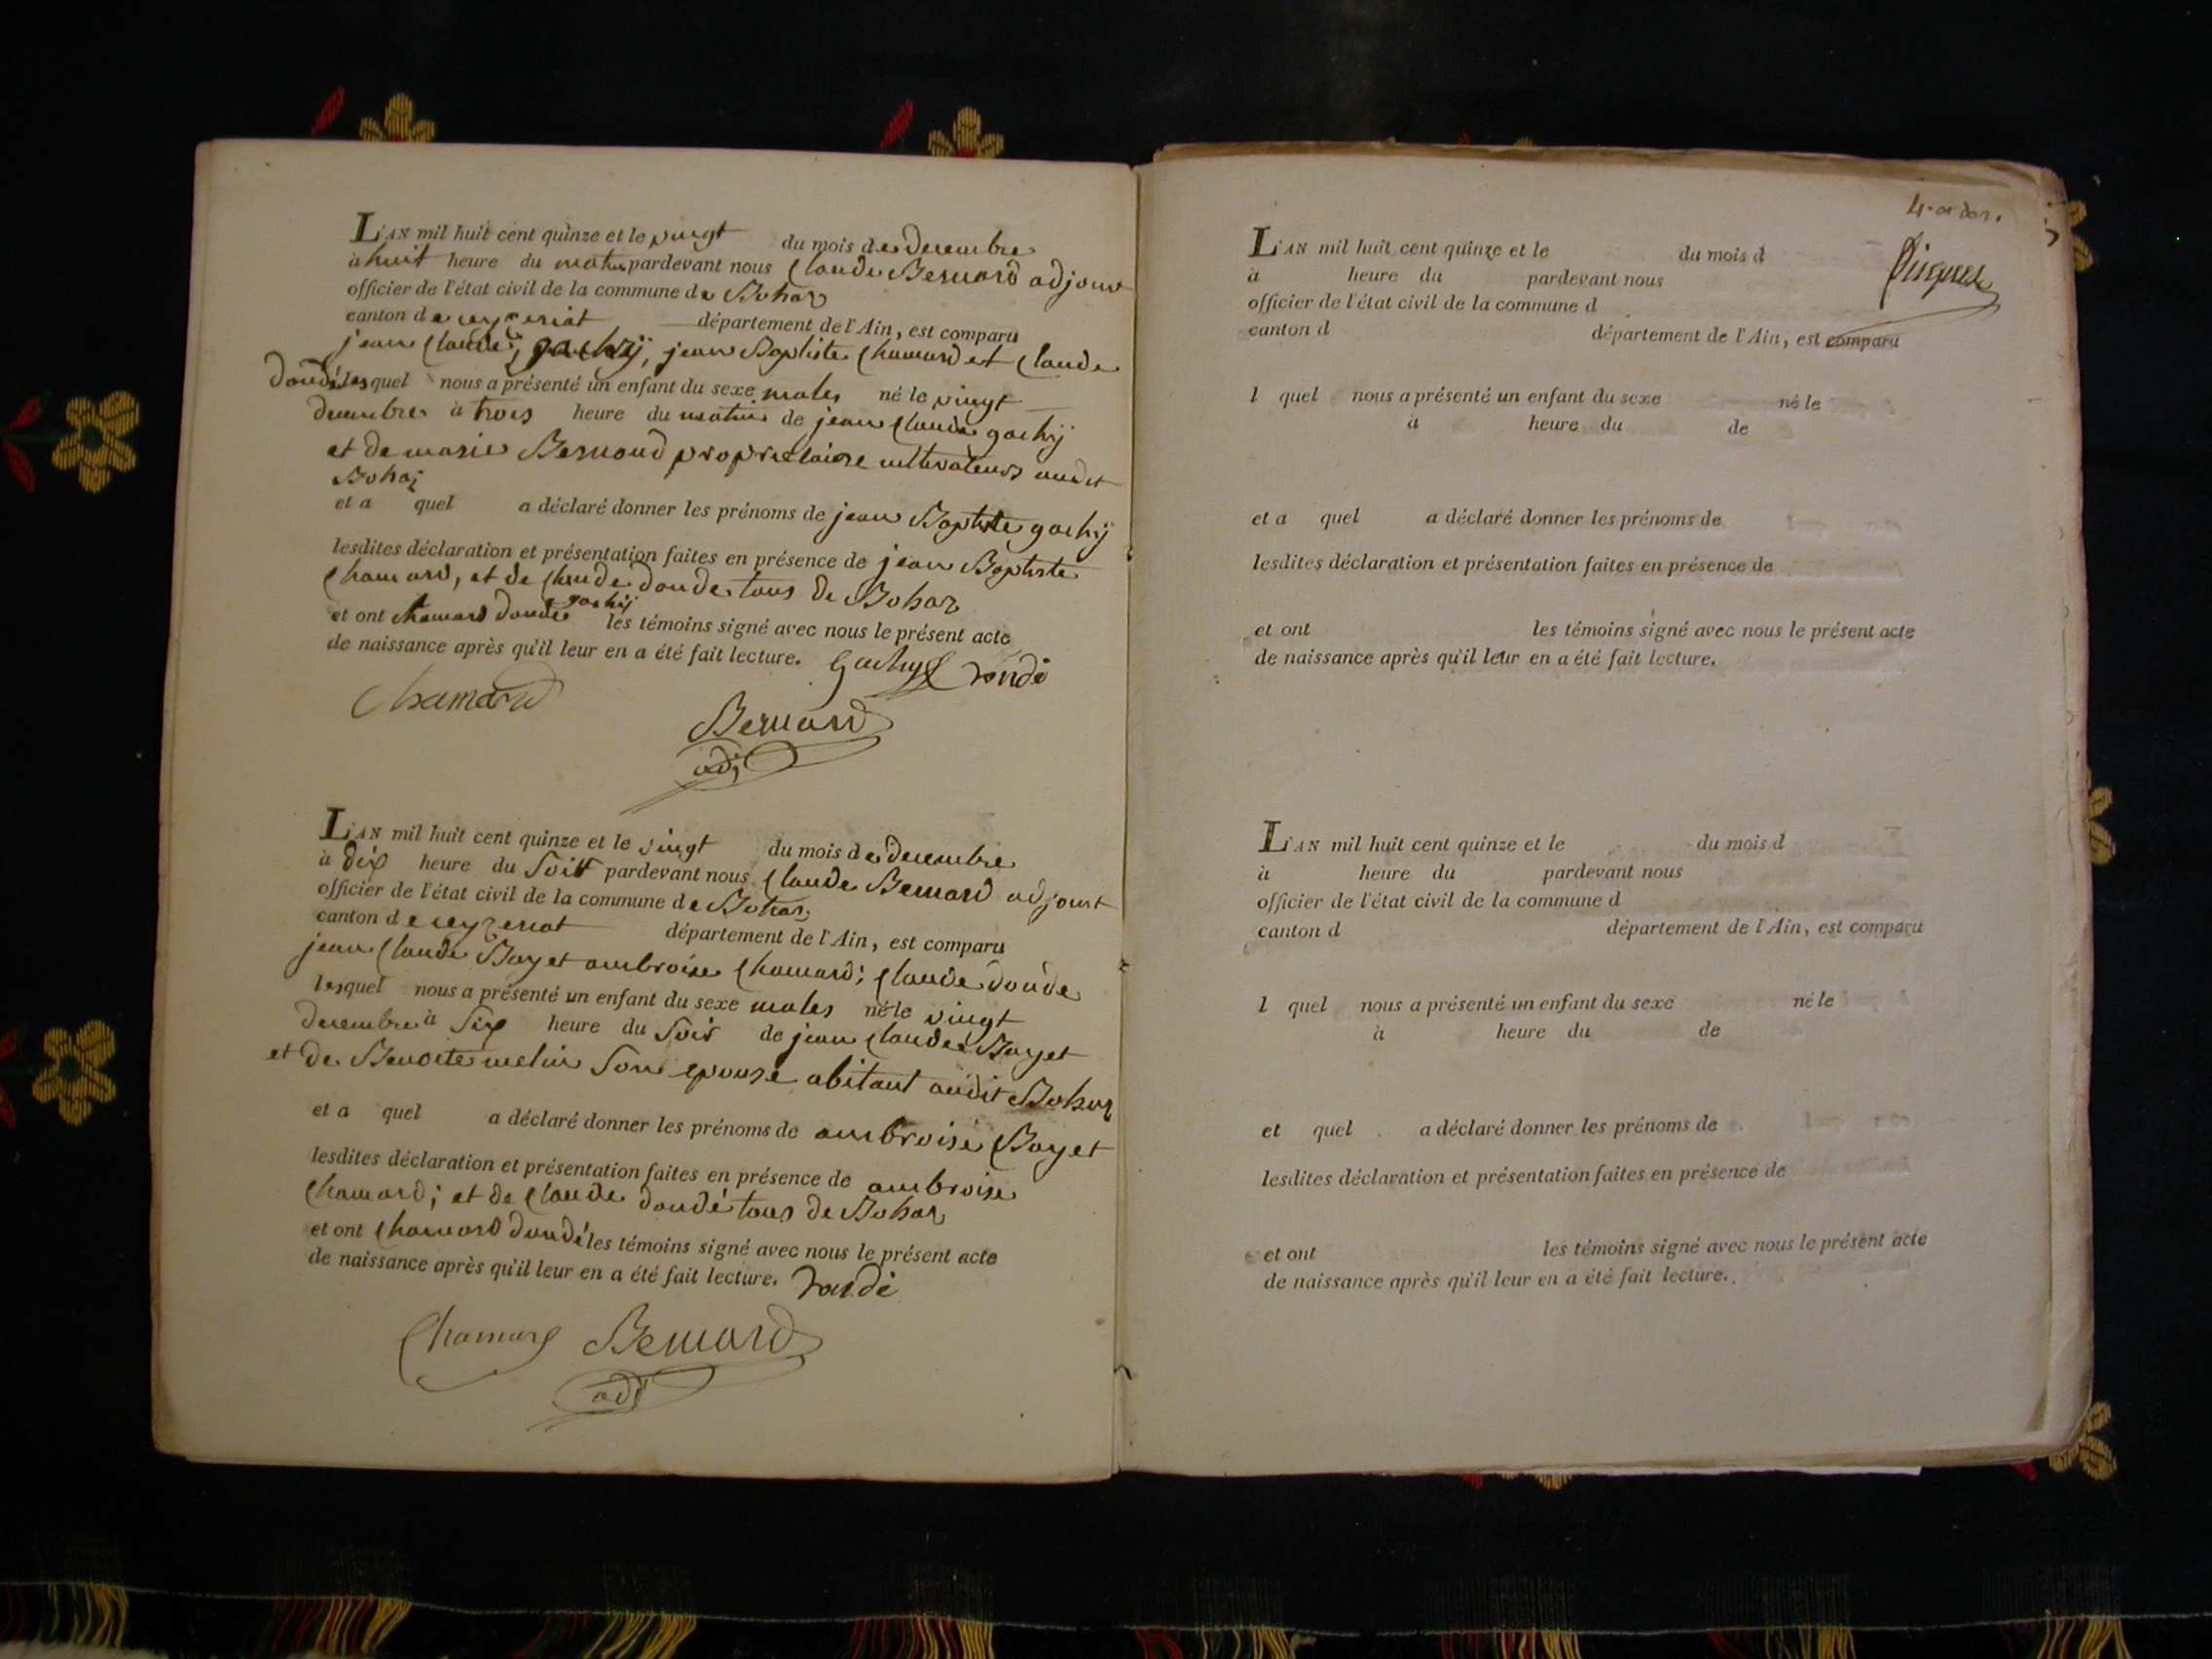 L'AN mil huit cent quinze et le vingt du mois de decembre
à huit heure du matin pardevant nous Claude Bernard adjoint
officier de l'état civil de la commune de Bohaz
canton de ceyzeriat département de l'Ain, est comparu
jean Claude gachÿ, jean Baptiste Chamard et Claude
doudé lesquel nous a présenté un enfant du sexe male né le vingt
decembre à trois heure du matin de jean Claude gachÿ
et de marie Bernard proprietaire cultivateurs audit
Bohaz
et a quel a déclaré donner les prénoms de jean Baptiste gachÿ
lesdites déclaration et présentation faites en présence de jean Baptiste
Chamard, et de Claude doudé tous de Bohaz
gachÿ
et ont chamard doudé les témoins signé avec nous le présent acte
de naissance après qu'il leur en a été fait lecture. Gachy doudé
Chamard
Bernard
adj
L'AN mil huit cent quinze et le vingt du mois de decembre
à dix heure du Soir pardevant nous Claude Bernard adjoint
officier de l'état civil de la commune de Bohaz
canton de ceyzeriat département de l'Ain, est comparu
jean Claude Bayet ambroise Chamard; Claude doudé
lesquel nous a présenté un enfant du sexe male né le vingt
decembre à Six heure du Soir de jean Claude Bayet
et de Benoite melin Son epouse abitant audit Bohaz
et a quel a déclaré donner les prénoms de ambroise Bayet
lesdites déclaration et présentation faites en présence de ambroise
Chamard; et de Claude doudé tous de Bohaz
et ont Chamard doudé les témoins signé avec nous le présent acte
de naissance après qu'il leur en a été fait lecture. doudé
Chamard Bernard
adj
L'AN mil huit cent quinze et le du mois d
à heure du pardevant nous
officier de l'état civil de la commune d
canton d département de l'Ain, est comparu
l quel nous a présenté un enfant du sexe né le
à heure du de
et a quel a déclaré donner les prénoms de
lesdites déclaration et présentation faites en présence de
et ont les témoins signé avec nous le présent acte
de naissance après qu'il leur en a été fait lecture.
L'AN mil huit cent quinze et le du mois d
à heure du pardevant nous
officier de l'état civil de la commune d
canton d département de l'Ain, est comparu
l quel nous a présenté un enfant du sexe né le
à heure du de
et quel a déclaré donner les prénoms de
lesdites déclaration et présentation faites en présence de
et ont les témoins signé avec nous le présent acte
de naissance après qu'il leur en a été fait lecture.